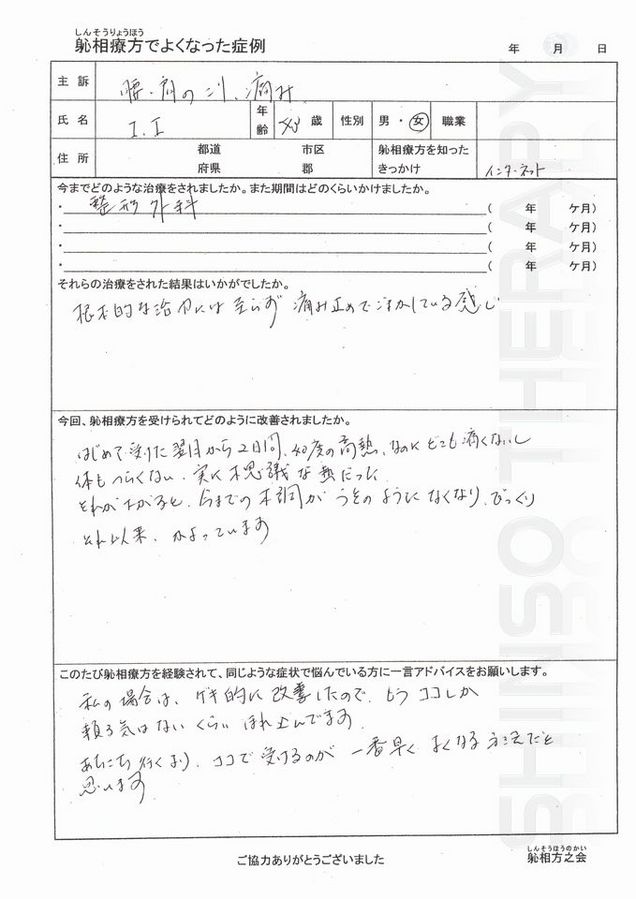 しんそうりょうほう
躰相療方でよくなった症例
年 月 日
主訴 腰・肩のコリ、痛み
氏名 I.I 年齢 歳 性別 男・女 職業
住所 都道府県 市区郡 躰相療方を知ったきっかけ インターネット
今までどのような治療をされましたか。また期間はどのくらいかけましたか。
・整形外科 ( 年 ケ月)
・ ( 年 ケ月)
・ ( 年 ケ月)
・ ( 年 ケ月)
それらの治療をされた結果はいかがでしたか。
根本的な治療には至らず 痛み止めでごまかしている感じ
今回、躰相療方を受けられてどのように改善されましたか。
はじめて受けた翌日から2日間、40度の高熱、なのにどこも痛くないし
体もつらくない。実に不思議な熱だった
それが下がると、今までの不調がうそのようになくなり、びっくり
それ以来、かよっています
このたび躰相療方を経験されて、同じような症状で悩んでいる方に一言アドバイスをお願いします。
私の場合は、ゲキ的に改善したので、もうココしか
頼る気はないくらい ほれ込んでます
あちこち行くより、ココで受けるのが 一番早く よくなる方法だと
思います
ご協力ありがとうございました
しんそうほうのかい
躰相方之会
SHINSO THERAPY